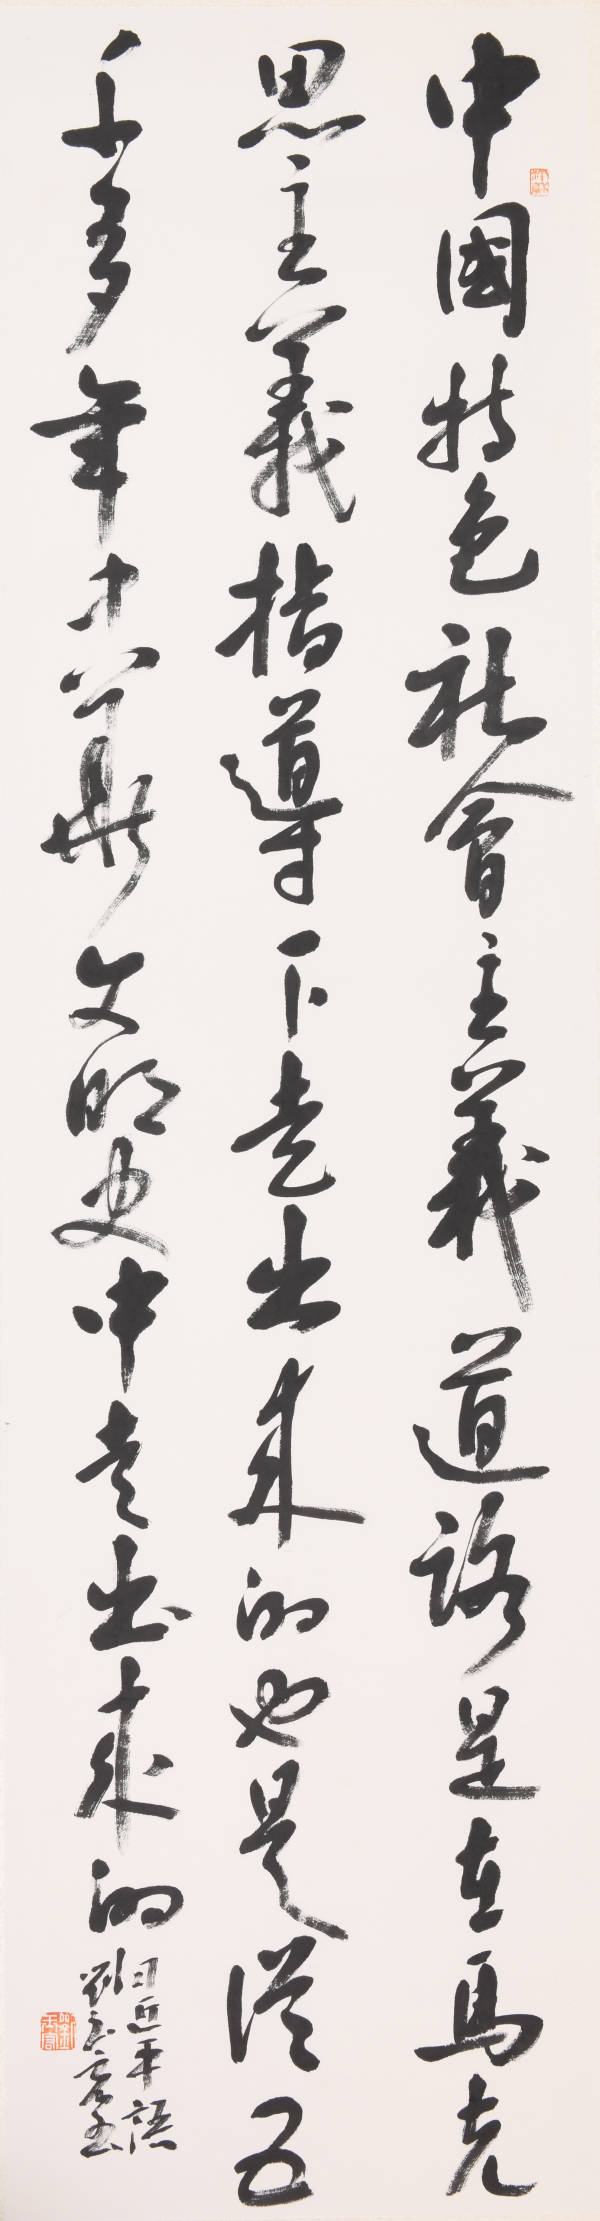 中國特色社會主義道路是在馬克
思主義指導下走出來的也是從五
千多年中華文明史中走出來的
習近平語
劉玉書